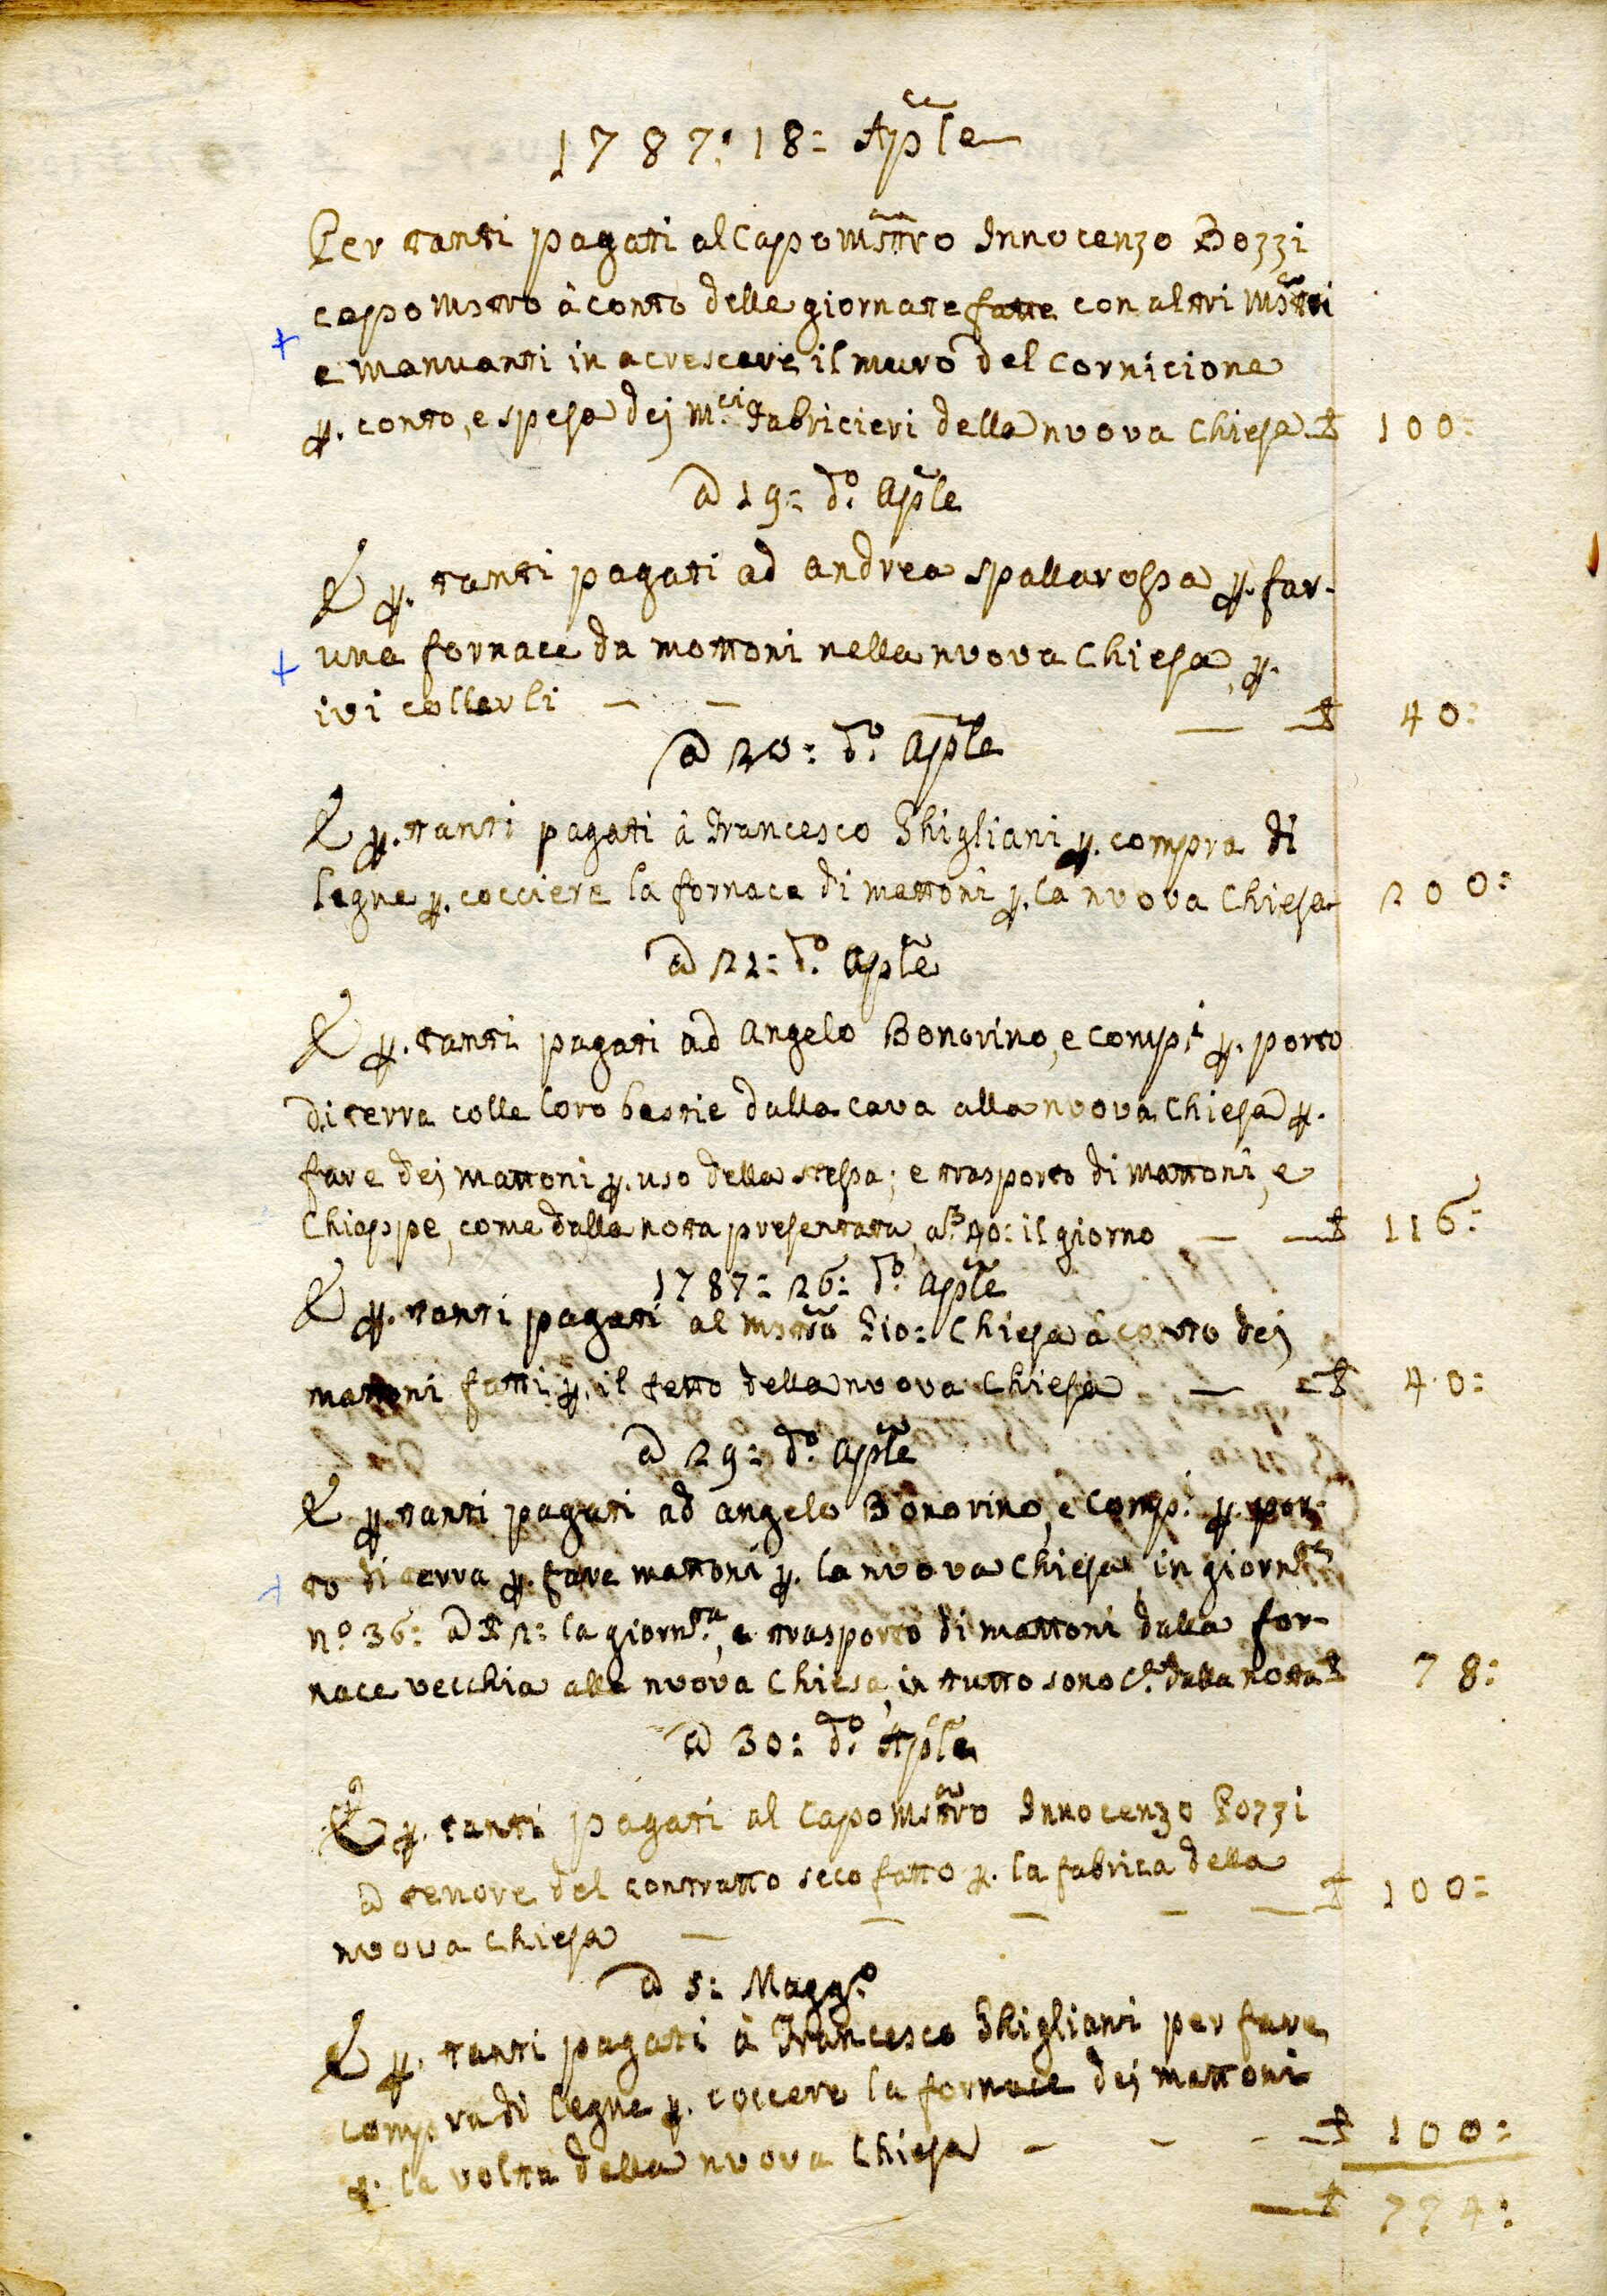 1787: 18: Aple
Per tanti pagati al Capomstro Innocenzo Bozzi
capomstro à conto delle giornate fatte con altri mstri
e manuanti in acrescere il muro del Cornicione
p. conto, e spesa dej M.ci Fabricieri della nuova Chiesa £ 100:
a 19: d.o Aple
E p. tanti pagati ad Andrea Spallarossa p. far
una fornace da mattoni nella nuova Chiesa, p.
ivi — — — £ 40:
a 20: d.o Aple
E p. tanti pagati à Francesco Ghigliani p. compra di
legne p. cocciere la fornace di mattoni p. la nuova Chiesa 200:
a 21: d.o Aple
E p. tanti pagati ad Angelo Bonorino, e Comp.i p. porto
di terra colle loro bestie dalla cava alla nuova Chiesa p.
fare dej mattoni p. uso della stessa; e trasporto di mattoni, e
Chiappe, come dalla nota presentata, a 40: il giorno — £ 116:
1787: 26: d.o Aple
E p. tanti pagati al mstro Gio: Chiesa à conto dej
mattoni fatti p. il tetto della nuova Chiesa — £ 40:
a 29: d.o Aple
E p. tanti pagati ad Angelo Bonorino, e Comp.i p. por-
to di terra p. fare mattoni p. la nuova Chiesa in giorn.te
n.o 36: a £ 2: la giorn.ta, e trasporto di mattoni dalla for-
nace vecchia alla nuova Chiesa, in tutto sono C.e dalla nota £ 78:
a 30: d.o Aple
E p. tanti pagati al Capomstro Innocenzo Pozzi
a tenore del contratto seco fatto p. la fabrica della
nuova Chiesa — — — — £ 100:
a 5: Magg.o
E p. tanti pagati à Francesco Ghigliani per fare
compra di legne p. coccere la fornace dej mattoni
p. la volta della nuova Chiesa — — — £ 100:
— £ 774: